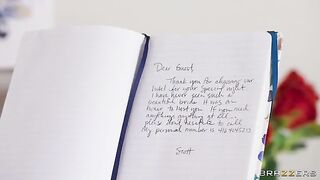 Dear Guest,
Thank you for choosing our
hotel for your special night
I have never seen such a
beautiful bride. It was an
honor to host you. If you need
anything anything at all...
please and hesitate to call
My personal number is
Scott
BRAZZERS